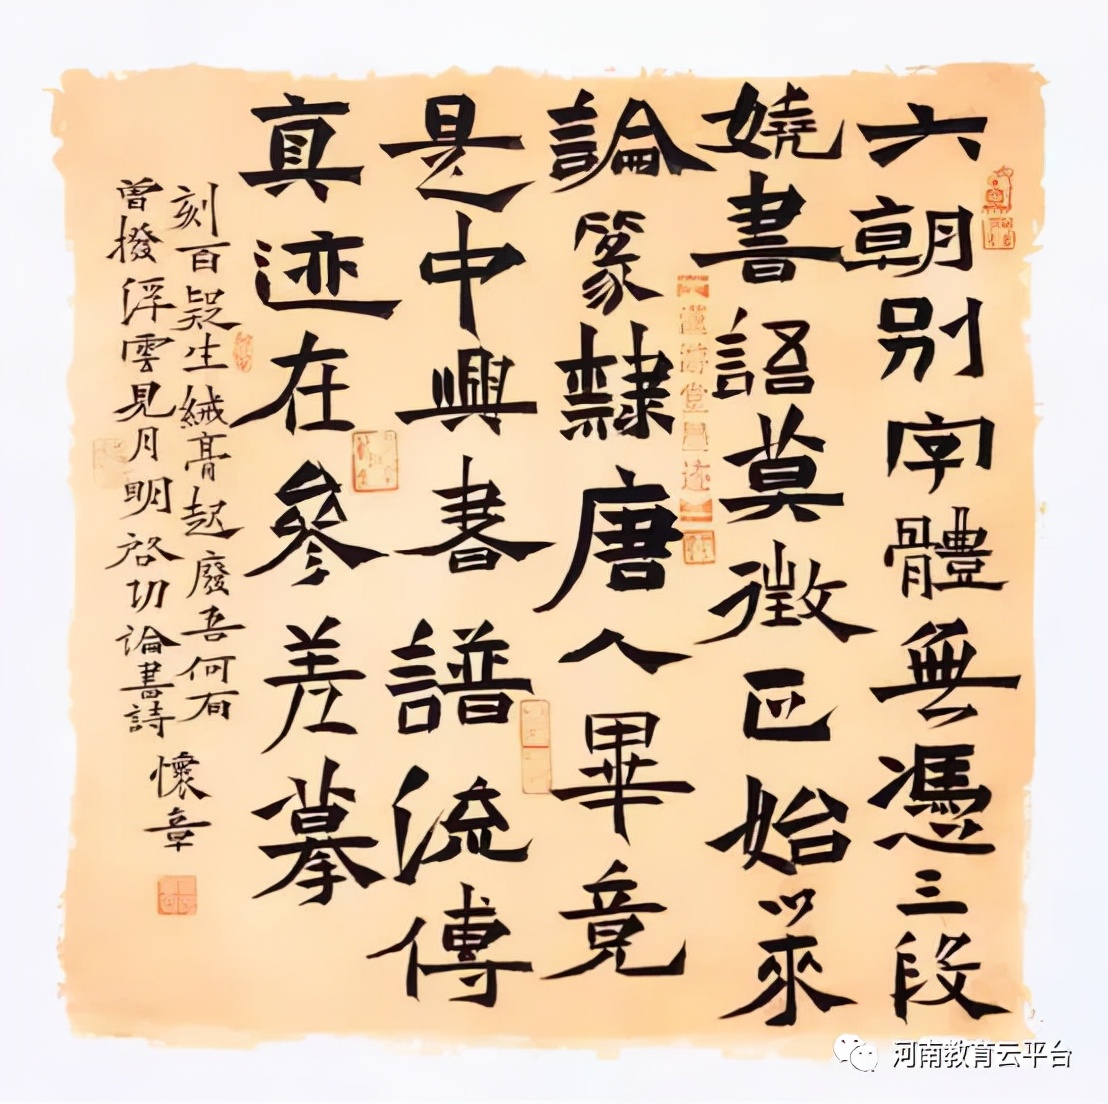 六朝别字體無憑三段
嬈書語莫徵正始以來
論篆隸唐人畢竟
是中興書譜流傳
真迹在參差摹
刻百疑生緘膏起廢吾何有
曾撥浮雲見月明启功論書詩
懷章
河南教育云平台